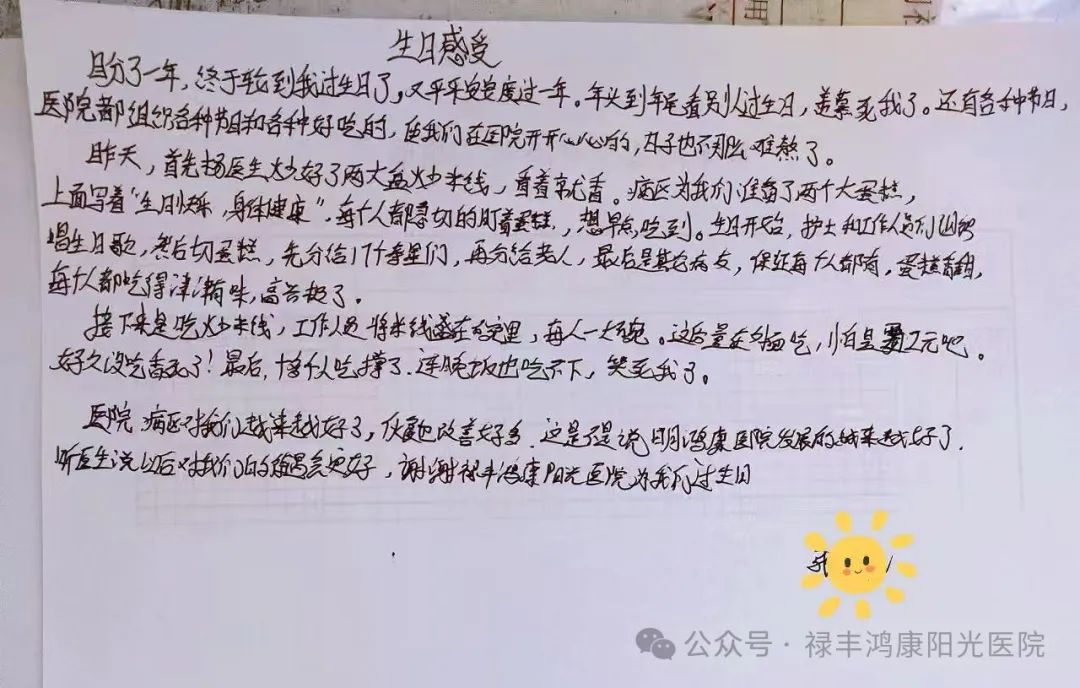 生日感受
盼了一年，终于轮到我过生日了，又平平安安度过一年。年头到年尾看别人过生日，羡慕死我了。还有各种节日，
医院都组织各种节目和各种好吃的，使我们在医院开开心心的，日子也不那么难熬了。
昨天，首先杨医生炒好了两大盆炒米线，看着就香。病区为我们准备了两个大蛋糕，
上面写着“生日快乐，身体健康”，每个人都急切的盯着蛋糕，想早点吃到。生日开始，护士和工作人员们组织
唱生日歌，然后切蛋糕，先分给17个寿星们，再分给老人，最后是其它病友，保证每个人都有，蛋糕香甜，
每个人都吃得津津有味，高兴极了。
接下来是吃炒米线，工作人员将米线盛在碗里，每人一大碗。这份量在外面吃，怕是要12元吧。
好久没吃香死了！最后，十多个人吃撑了，连晚饭也吃不下，笑死我了。
医院病区对我们越来越好了，伙食也改善好多，这是不是说明鸿康医院发展的越来越好了。
听医生说以后对我们的待遇会更好，谢谢禄丰鸿康阳光医院为我们过生日
公众号·禄丰鸿康阳光医院